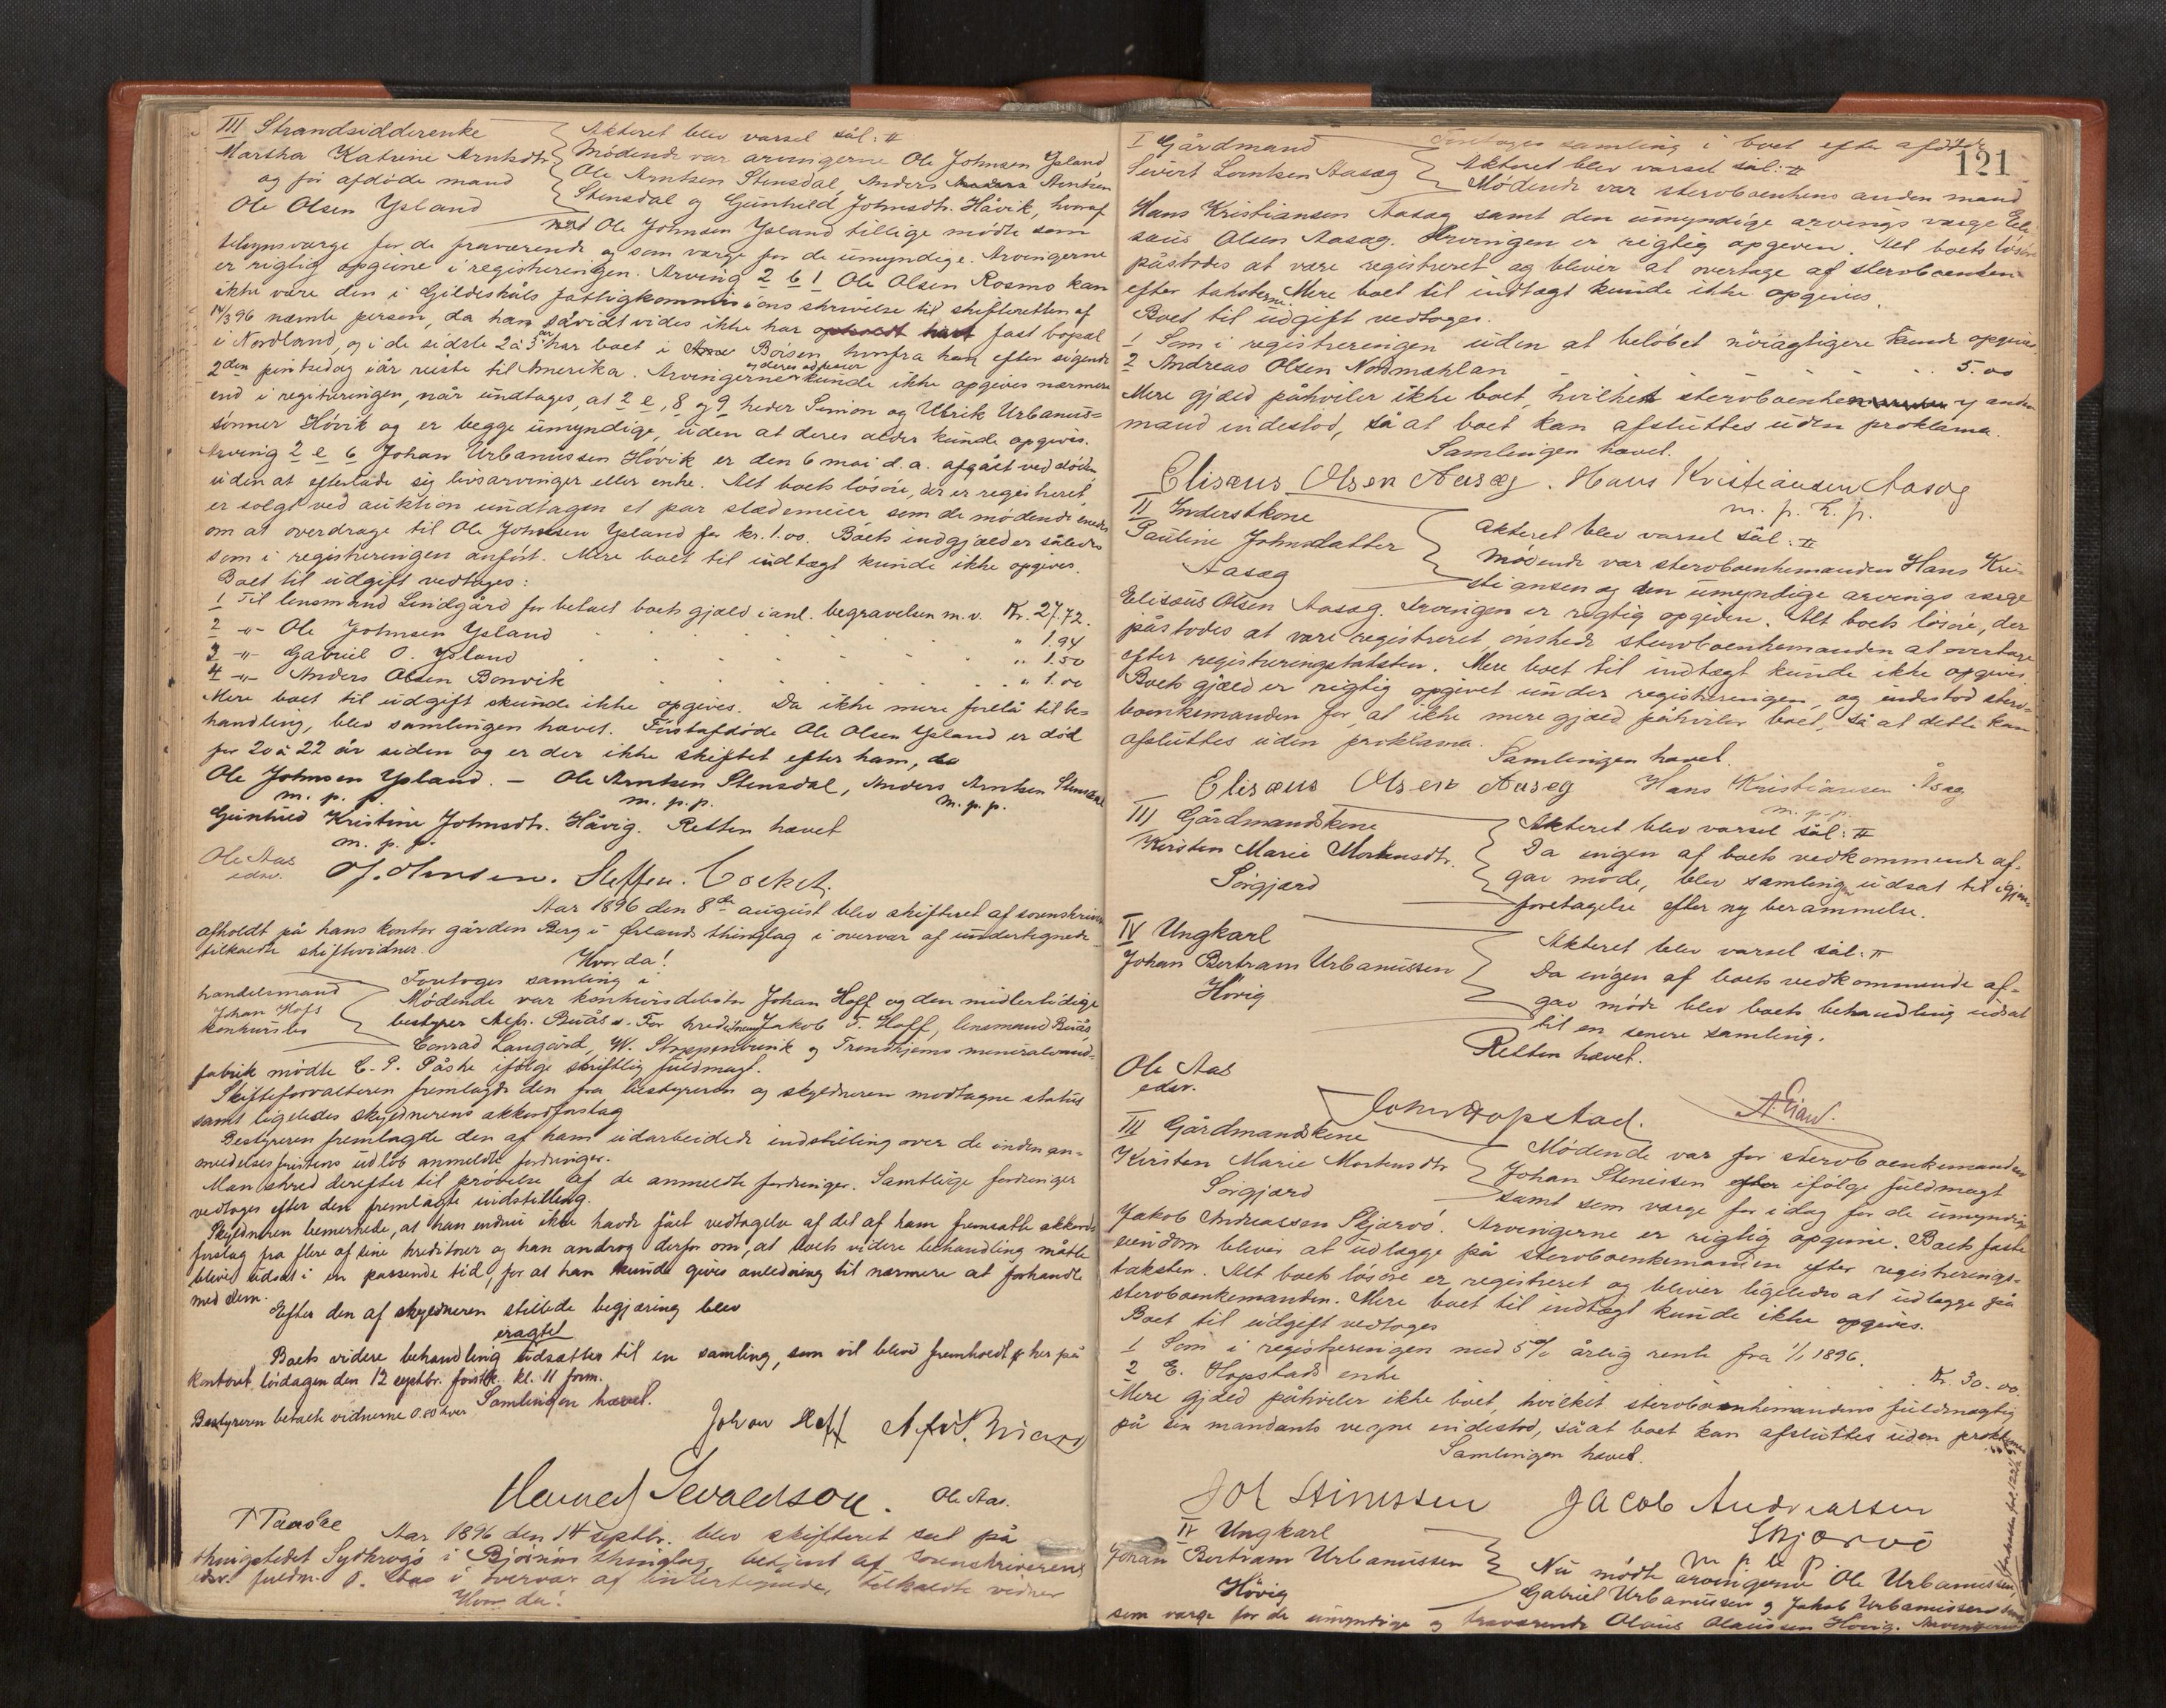 III Strandsidderenke
Martha Katrine Arntsdtr.
og før afdøde mand
Ole Olsen Ysland
Akteret blev varsel sål: #
Mødende var arvingerne Ole Johnsen Ysland
Ole Arntsen Stensdal, Anders Arntsen
Stensdal og Gunhild Johnsdtr. Håvik, hvoraf
Ole Johnsen Ysland tillige mødte som
tilsynsværge for de fraværende og som værge for de umyndige. Arvingerne
er rigtig opgivne i registreringen. Arving 2 b 1 Ole Olsen Rosmo kan
ikke være den i Gildeskåls fattigkommissions skrivelse til skifteretten af
14/3 96 nævnte person, da han såvidt vides ikke har fast bopæl
i Nordland, og i de sidste 2 à 3 år har boet i Børsen, hvorfra han efter sigende
2den pintsedag iår reiste til Amerika. Arvingerne og deres adresser kunde ikke opgives nærmere
end i registreringen, når undtages, at 2 e, 8 og 9 heder Simon og Ulrik Urbanus=
sønner Høvik og er begge umyndige, uden at deres alder kunde opgives.
Arving 2 e 6 Johan Urbanussen Høvik er den 6 mai d.a. afgået ved døden
uden at efterlade sig livsarvinger eller enke. Alt boets løsøre, der er registreret,
er solgt ved auktion undtagen et par slædemeier som de mødende enedes
om at overdrage til Ole Johnsen Ysland for kr. 1.00. Boets indgjæld er således
som i registreringen anført. Mere boet til indtægt kunde ikke opgives.
Boet til udgift vedtoges:
1 Til lensmand Lindgård for betalt boets gjæld i anl. begravelsen m.v. Kr. 27.72.
2 -"- Ole Johnsen Ysland " 1.94
3 -"- Gabriel O. Ysland " 1.50
4 -"- Anders Olsen Bonvik " 1.00
Mere boet til udgift kunde ikke opgives. Da ikke mere forelå til be=
handling, blev samlingen hævet. Førstafdøde Ole Olsen Ysland er død
for 20 à 22 år siden og er der ikke skiftet efter ham, da
Ole Johnsen Ysland. — Ole Arntsen Stensdal, Anders Arntsen Stensdal
m. p. p. m. p. p. m. p. p.
Gunhild Kristine Johnsdtr. Håvig. Retten hævet
m. p. p.
Ole Aas
edsv.
Aar 1896 den 8de august blev skifteret af sorenskriveren
afholdt på hans kontor gården Berg i Ørlands thinglag i overvær af undertegnede
tilkaldte skiftevidner.
Hvor da!
Foretoges samling i
handelsmand
Johan Hofs
konkursbo
Mødende var konkursdebitor Johan Hoff og den midlertidige
bestyrer Alfr. Buås. For kreditorerne Jakob T. Hoff, lensmand Buås,
Conrad Langård, W. Stoppenbrink og Trondhjems mineralvand=
fabrik mødte E. P. Påske ifølge skriftlig fuldmagt.
Skifteforvalteren fremlagde den fra bestyreren og skyldneren modtagne status
samt ligeledes skyldnerens akkordforslag
Bestyreren fremlagde den af ham udarbeidede indstilling over de inden an=
meldelsesfristens udløb anmeldte fordringer.
Man skred derefter til prøvelse af de anmeldte fordringer. Samtlige fordringer
vedtoges efter den fremlagte indstilling.
Skyldneren bemerkede, at han endnu ikke havde fået vedtagelse af det af ham fremsatte akkord=
forslag fra flere af sine kreditorer og han androg derfor om, at boets videre behandling måtte
blive udsat i en passende tid, for at han kunde gives anledning til nærmere at forhandle
med dem.
Efter den af skyldneren stillede begjæring blev
eragtet
Boets videre behandling udsættes til en samling, som vil blive fremholdt her på
kontoret lørdagen den 12 septbr. førstk. kl. 11 form.
Bestyreren betalte vidnerne 0.80 hver Samlingen hævet.
Johan Hoff
Ole Aas.
T Paaske
Aar 1896 den 14 septbr. blev skifteret sat på
thingstedet Sydkrogø i Bjørnørs thinglag, betjent af sorenskriverens
edsv. fuldm. O. Aas i overvær af undertegnede, tilkaldte vidner
Hvor da!
121
Foretoges samling i boet efter afdøde
I Gårdmand
Sivert Lorntsen Aasag
Akteret blev varsel sål: #
Mødende var sterboenkens anden mand
Hans Kristiansen Aasag samt den umyndige arvings værge Eli=
sæus Olsen Aasag. Arvingen er rigtig opgiven. Alt boets løsøre
påstodes at være registreret og bliver at overtage af sterboenken
efter taksterne. Mere boet til indtægt kunde ikke opgives.
Boet til udgift vedtoges.
1 Som i registreringen uden at beløbet nøiagtigere kunde opgives
2 Andreas Olsen Nordmæhlan 5.00
Mere gjæld påhviler ikke boet, hvilket sterboenkens ny anden
mand indestod, så at boet kan afsluttes uden proklama.
Samlingen hævet.
Elisæus Olsen Aasæg. Hans Kristiansen Aasag
m. p. p.
II Inderstkone
Pauline Johnsdatter
Aasag
Akteret blev varsel sål: #
Mødende var sterboenkemanden Hans Kri=
stiansen og den umyndige arvings værge
Elisæus Olsen Aasag. Arvingen er rigtig opgiven. Alt boets løsøre, der
påstodes at være registreret, ønskede sterboenkemanden at overtage
efter registreringstaksten. Mere boet til indtægt kunde ikke opgives.
Boets gjæld er rigtig opgivet under registreringen, og indestod sterbo=
boenkemanden for, at ikke mere gjæld påhviler boet, så at dette kan
afsluttes uden proklama.
Samlingen hævet.
Elisæus Olsen Aaseg Hans Kristiansen Åsag
m. p. p.
III Gårdmandskone
Kirsten Marie Mortensdtr.
Sørgjærd
Akteret blev varsel sål: #
Da ingen af boets vedkommende af=
gav møde, blev samlingen udsat til igjen=
foretagelse efter ny berammelse.
IV Ungkarl
Johan Bertram Urbanussen
Høvig
Akteret blev varsel sål: #
Da ingen af boets vedkommende af=
gav møde blev boets behandling udsat
til en senere samling.
Retten hævet.
Ole Aas
edsv.
III Gårdmandskone
Kirsten Marie Mortensdtr
Sørgjærd
Mødende var for sterboenkemanden
Johan Stenesen ifølge fuldmagt
samt som værge for idag for de umyndige
Jakob Andreassen Skjærvø. Arvingerne er rigtig opgivne. Boets faste
eiendom bliver at udlægge på sterboenkemanden efter registrerings=
taksten. Alt boets løsøre er registreret og bliver ligeledes at udlægge på
sterboenkemanden. Mere boet til indtægt kunde ikke opgives.
Boet til udgift vedtoges
1 Som i registreringen med 5% årlig rente fra 1/1 1896.
2 E. Hopstads enke Kr. 30.00.
Mere gjæld påhviler ikke boet, hvilket sterboenkemandens fuldmægtig
på sin mandants vegne indestod, såat boet kan afsluttes uden proklama
Samlingen hævet.
Joh Stinessen Jacob Andreassen
Skjærvø
m p p
IV Ungkarl
Johan Bertram Urbanussen
Høvig
Nu mødte arvingerne Ole Urbanussen,
Gabriel Urbanussen og Jakob Urbanussen samt
som værge for de umyndige og fraværende Olaus Olaussen Høvig. Arvingerne